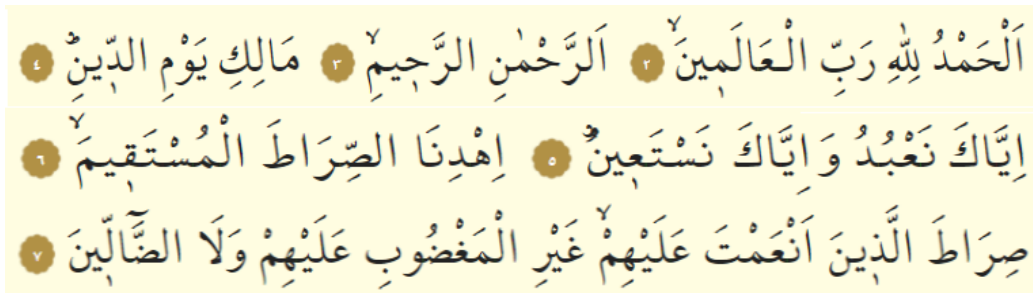 اَلْحَمْدُ لِلّٰهِ رَبِّ الْعَالَمٖينَۙ ٢ اَلرَّحْمٰنِ الرَّحٖيمِۙ ٣ مَالِكِ يَوْمِ الدّٖينِؕ ٤
اِيَّاكَ نَعْبُدُ وَاِيَّاكَ نَسْتَعٖينُؕ ٥ اِهْدِنَا الصِّرَاطَ الْمُسْتَقٖيمَۙ ٦
صِرَاطَ الَّذٖينَ اَنْعَمْتَ عَلَيْهِمْۙ غَيْرِ الْمَغْضُوبِ عَلَيْهِمْ وَلَا الضَّٓالّٖينَ ٧